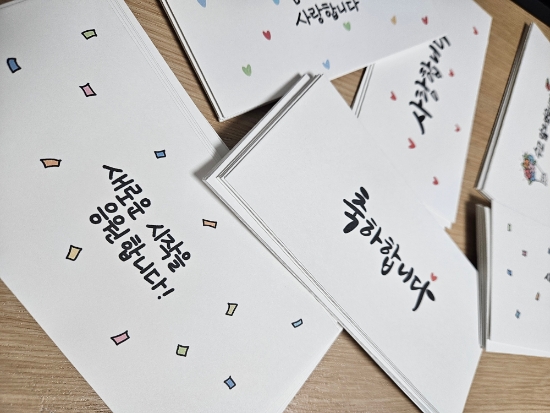 새로운 시작을
응원합니다!
축하합니다
사랑합니다
사랑합니다